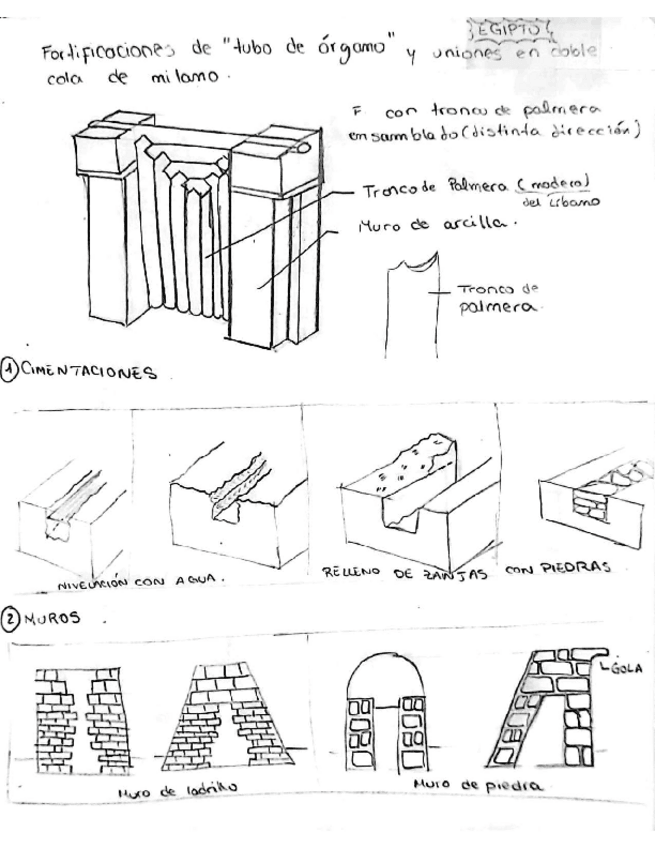 EGIPTO
Fortificaciones de "tubo de órgano" y uniones en doble
cola de milano.
F con tronco de palmera
ensamblado (distinta dirección)
Tronco de Palmera (madera)
del Líbano
Muro de arcilla.
Tronco de
palmera.
① CIMENTACIONES
NIVELACIÓN CON AGUA.
RELLENO DE ZANJAS CON PIEDRAS.
② MUROS.
GOLA
Muro de ladrillo
Muro de piedra